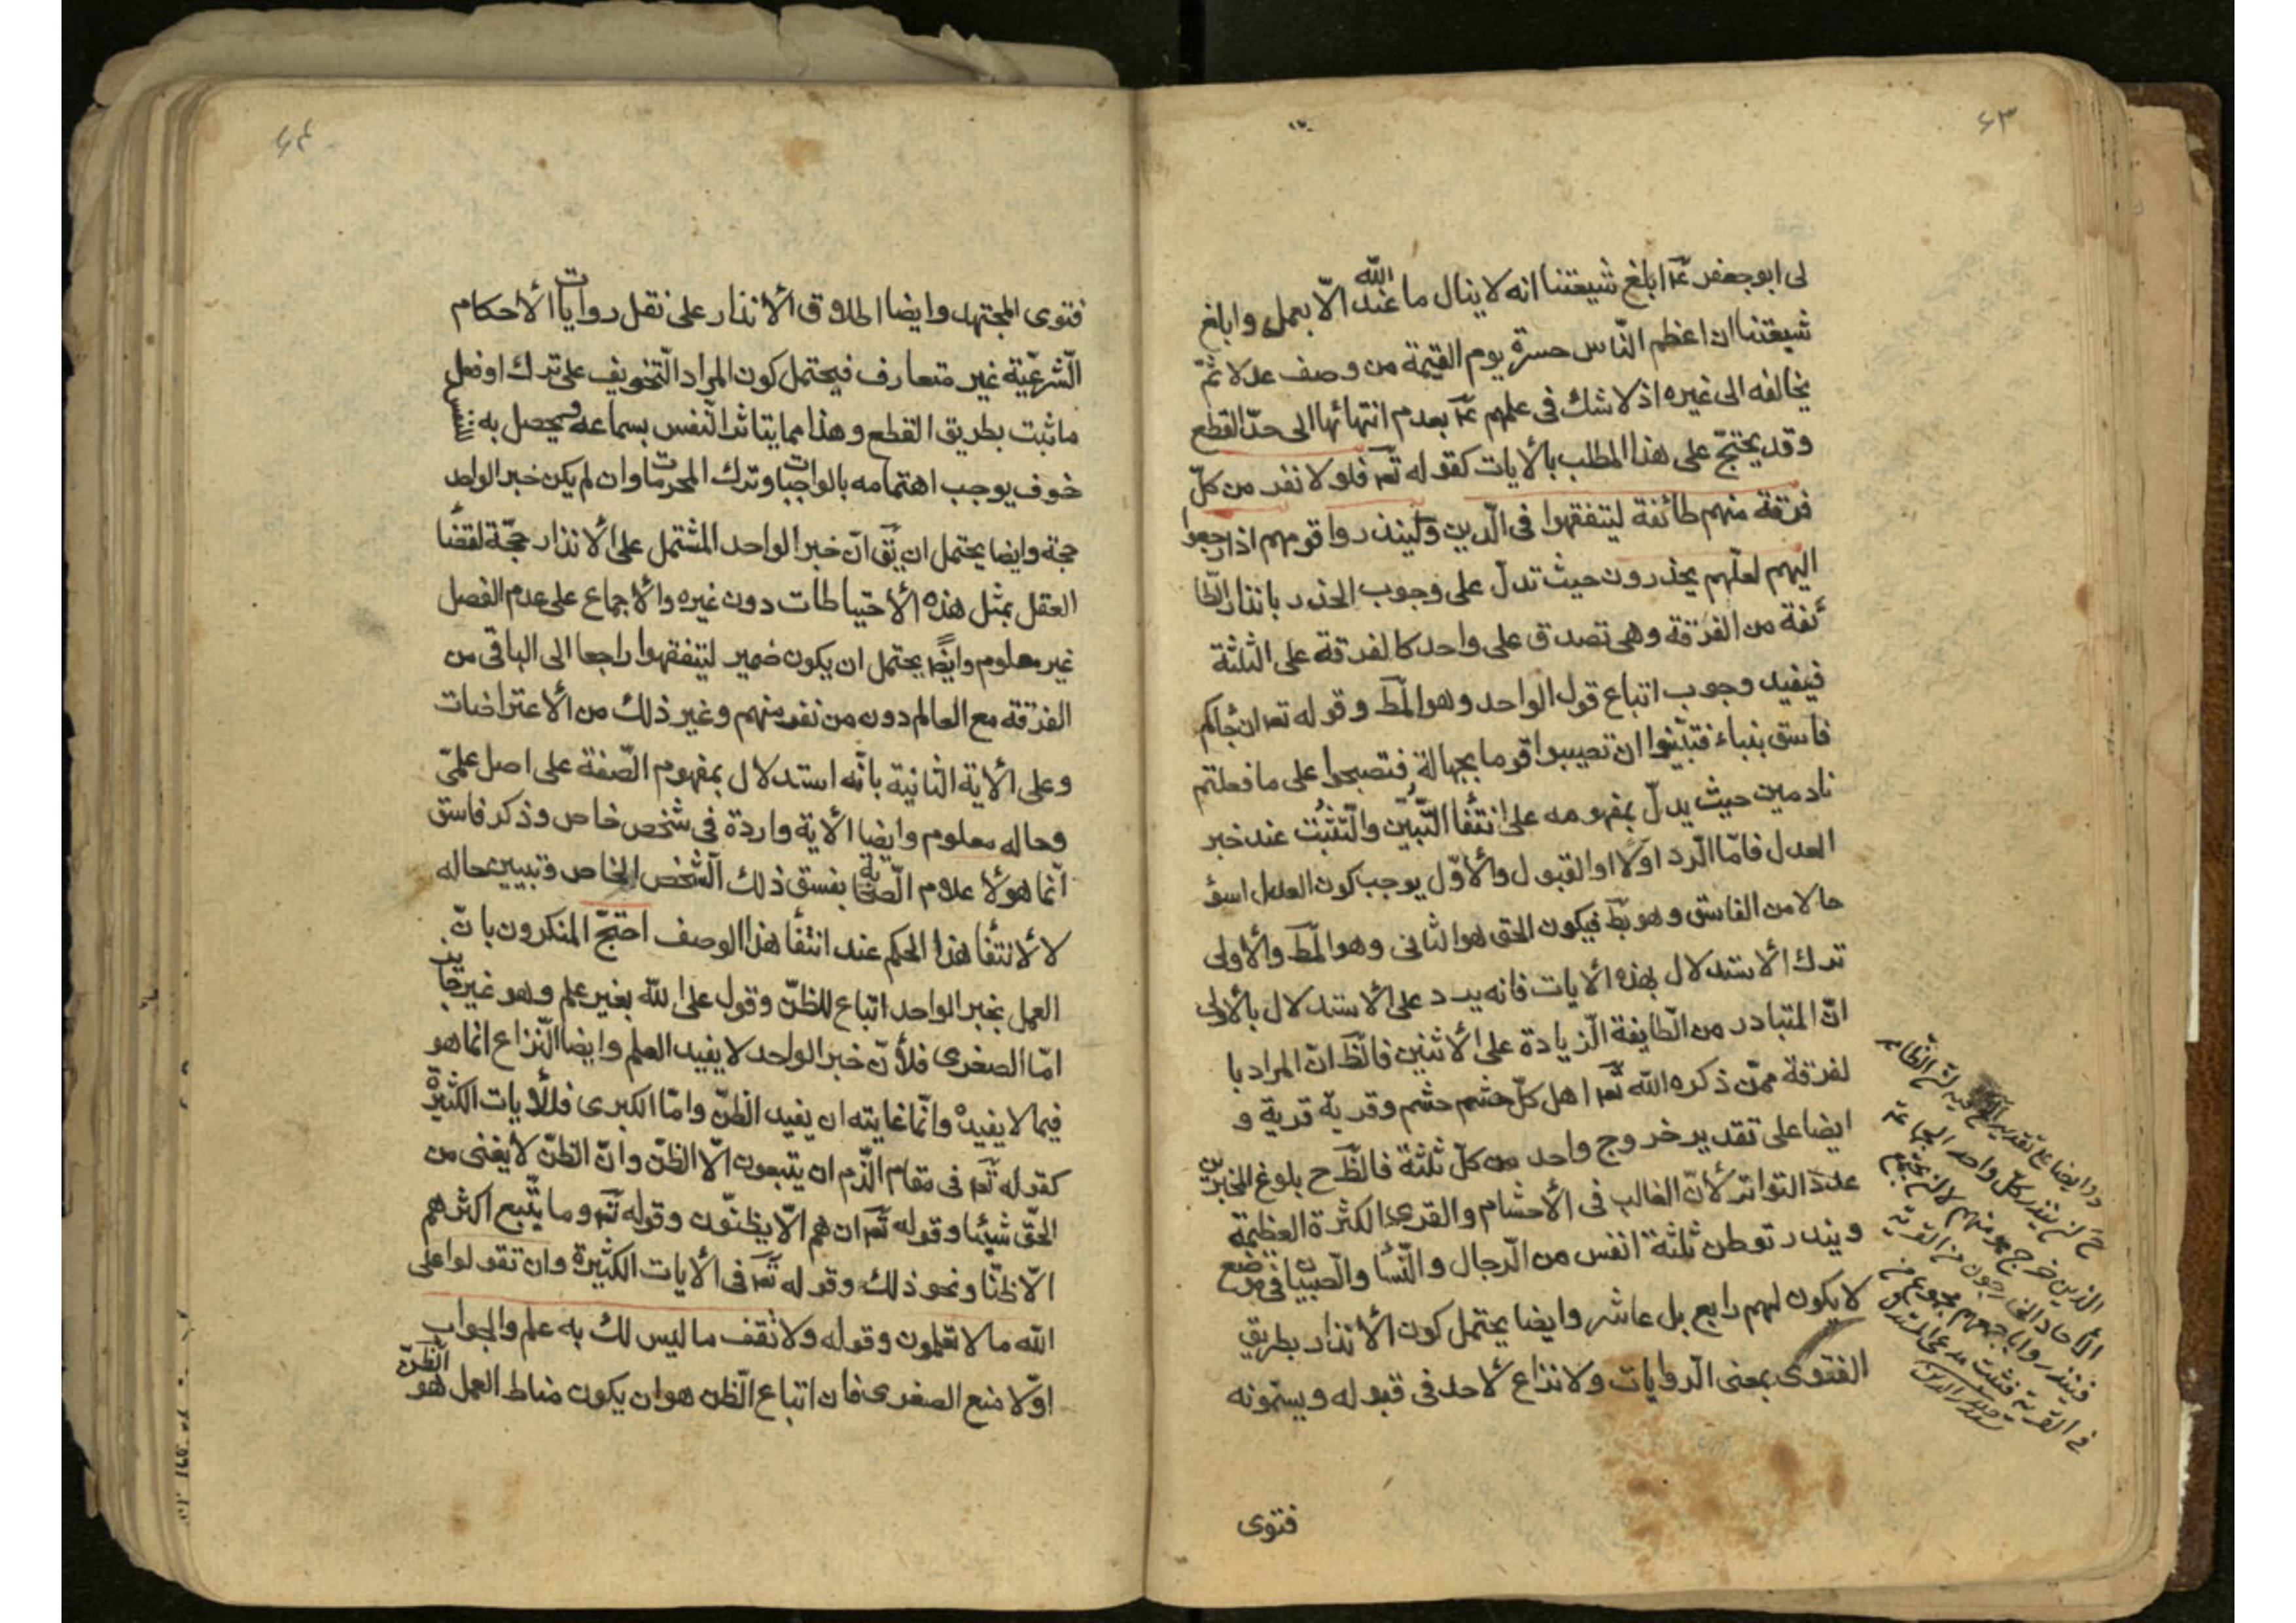 ٦٣
لى ابو جعفر عم ابلغ شيعتنا انه لا ينال ما عند الله الّا بعمل وابلغ
شيعتنا ان اعظم النّاس حسرة يوم القيمة من وصف عدلا ثمّ
يخالفه الى غيره اذ لا شك فى علمهم عم بعدم انتهائها الى حدّ القطع
وقد يحتجّ على هذا المطلب بالايات كقوله تعم فلولا نفر من كلّ
فرقة منهم طائفة ليتفقهوا فى الّدين ولينذروا قومهم اذا رجعوا
اليهم لعلّهم يحذرون حيث تدلّ على وجوب الحذر بانذار الطّا
ئفة من الفرقة وهى تصدق على واحد كالفرقة على الثلثة
فيفيد وجوب اتباع قول الواحد وهو المط وقوله تعم ان جاكم
فاسق بنباء فتبيّنوا ان تصيبوا قوما بجهالة فتصبحوا على ما فعلتم
نادمين حيث يدلّ بمفهومه على انتفأ التّبيّن والتّثبّت عند خبر
العدل فامّا الّرد اوّلا او القبول والأوّل يوجب كون العدل اسؤ
حالا من الفاسق وهو بط فيكون الحق هو الثانى وهو المط والأولى
ترك الأستدلال بهذه الأيات فانه يرد على الأستدلال بالأولى
انّ المتبادر من الّطايفة الّزيادة على الأثنين فالّظ انّ المراد با
لفرقة ممّن ذكره الله تعم اهل كلّ حشم حشم وقرية قرية و
ايضا على تقدير خروج واحد من كلّ ثلثة فالّظ ح بلوغ المخبرين
عدد التواتر لأنّ الغالب فى الأحشام والقرى الكثرة العظيمة
ويندر توطن ثلثة انفس من الّرجال والنّسأ والّصبيان فى موضع
لا يكون لهم رابع بل عاشر وايضا يحتمل كون الأنذار بطريق
الفتوى بمعنى الّروايات ولا نزاع لأحد فى قبوله ويسمّونه
فتوى
الذين خرج منهم
٦٤
فتوى المجتهد وايضا اطلاق الأنذار على نقل روايات الأحكام
الّشرعّية غير متعارف فيحتمل كون المراد الّتخويف على ترك او فعل
ما ثبت بطريق القطع وهذا مما يتاثر الّنفس بسماعه ويحصل به للنفس
خوف يوجب اهتمامه بالواجبات وترك المحرمات وان لم يكن خبر الواحد
حجة وايضا يحتمل ان يق انّ خبر الواحد المشتمل على الأنذار حجّة لقضأ
العقل بمثل هذه الأحتياطات دون غيره والأجماع على عدم الفصل
غير معلوم وايضا يحتمل ان يكون ضمير ليتفقهوا راجعا الى الباقى من
الفرقة مع العالم دون من نفر منهم وغير ذلك من الأعتراضات
وعلى الأية الثانية بانّه استدلال بمفهوم الّصفة على اصل علمّى
وحاله معلوم وايضا الأية واردة فى شخص خاص وذكر فاسق
انّما هو لأعلام الّصحابة بفسق ذلك الّشخص الخاص وتبيين حاله
لا لأنتفأ هذا الحكم عند انتفأ هذا الوصف احتجّ المنكرون بانّ
العمل بخبر الواحد اتباع للظنّ وقول على الله بغير علم وهو غير جايز
امّا الصغرى فلأنّ خبر الواحد لا يفيد العلم وايضا الّنزاع انما هو
فيما لا يفيده وانّما غايته ان يفيد الظنّ وامّا الكبرى فللأيات الكثيرة
كقوله تعم فى مقام الّذم ان يتبعون الّا الظنّ وانّ الظنّ لا يغنى من
الحقّ شيئا وقوله تعم ان هم الّا يظنّون وقوله تعم وما يتّبع اكثرهم
الّا ظنّا ونحو ذلك وقوله تعم فى الأيات الكثيرة وان تقولوا على
الله ما لا تعلمون وقوله ولا تقف ما ليس لك به علم والجواب
اوّلا منع الصغرى فان اتباع الّظن هو ان يكون مناط العمل هو الّظنّ